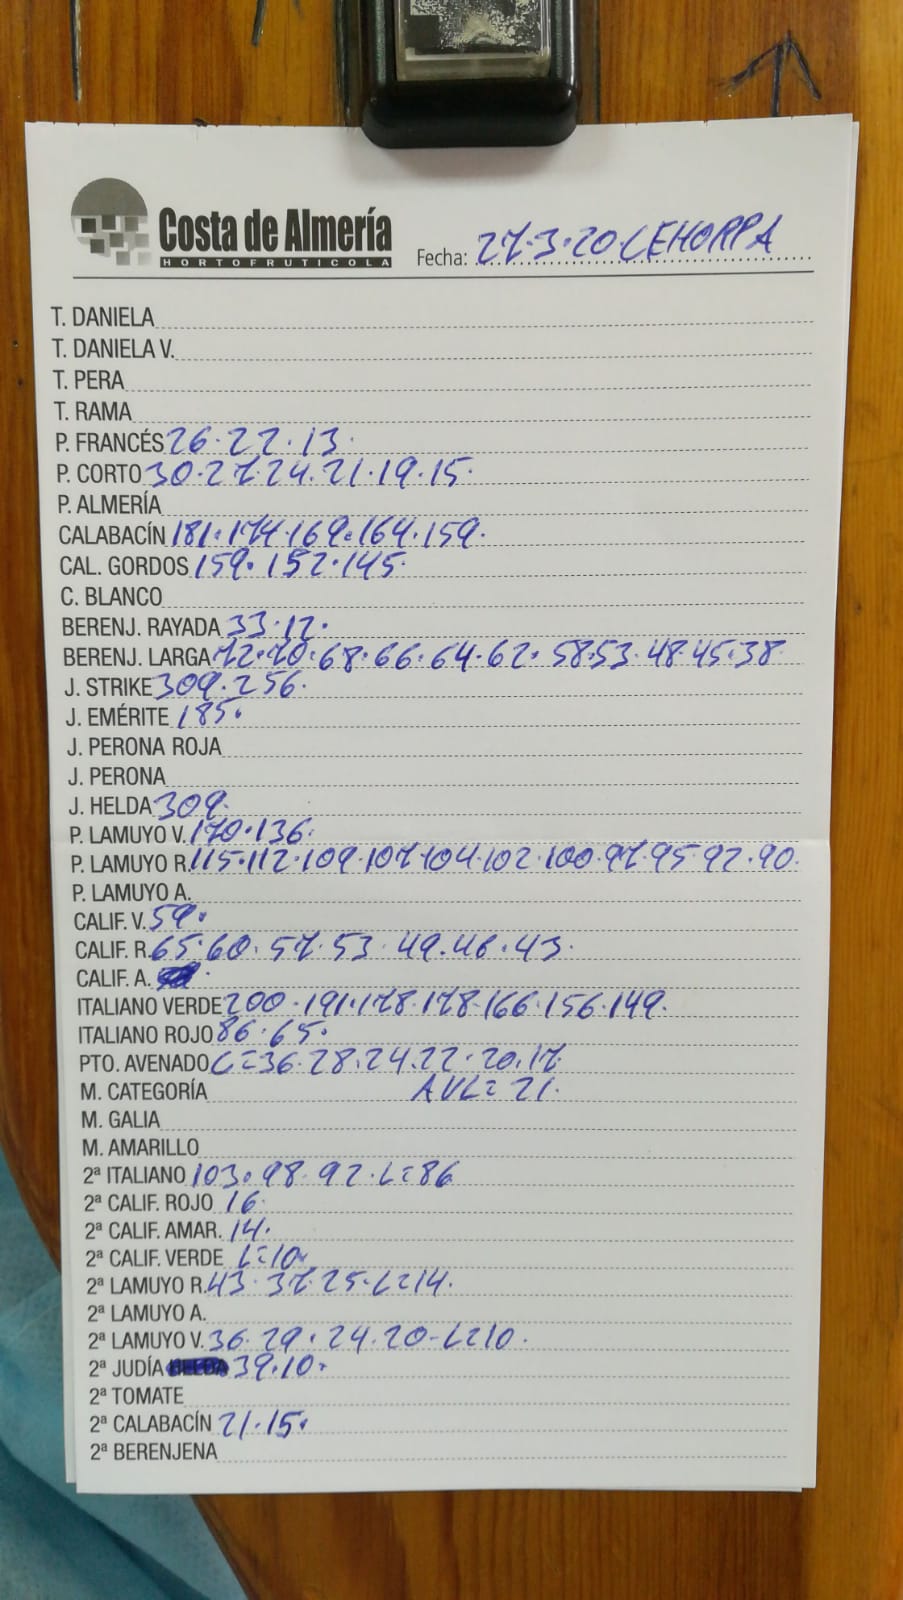 Costa de Almería
HORTOFRUTICOLA
Fecha: 27.3.20 CEHORPA
T. DANIELA
T. DANIELA V.
T. PERA
T. RAMA
P. FRANCÉS 26.22.13.
P. CORTO 30.27.24.21.19.15.
P. ALMERÍA
CALABACÍN 181.174.169.164.159.
CAL. GORDOS 159.152.145.
C. BLANCO
BERENJ. RAYADA 33.12.
BERENJ. LARGA 72.70.68.66.64.62.58.53.48.45.38.
J. STRIKE 309.256.
J. EMÉRITE 185.
J. PERONA ROJA
J. PERONA
J. HELDA 309.
P. LAMUYO V. 170.136.
P. LAMUYO R. 115.112.109.107.104.102.100.97.95.92.90.
P. LAMUYO A.
CALIF. V. 59.
CALIF. R. 65.60.57.53.49.46.43.
CALIF. A.
ITALIANO VERDE 200.191.178.178.166.156.149.
ITALIANO ROJO 86.65.
PTO. AVENADO C=36.28.24.22.20.17.
M. CATEGORÍA AVL=21.
M. GALIA
M. AMARILLO
2ª ITALIANO 103.98.92.L=86
2ª CALIF. ROJO 16.
2ª CALIF. AMAR. 14.
2ª CALIF. VERDE L=10.
2ª LAMUYO R. 43.37.25.L=14.
2ª LAMUYO A.
2ª LAMUYO V. 36.29.24.20-L=10.
2ª JUDÍA 39.10.
2ª TOMATE
2ª CALABACÍN 21.15.
2ª BERENJENA